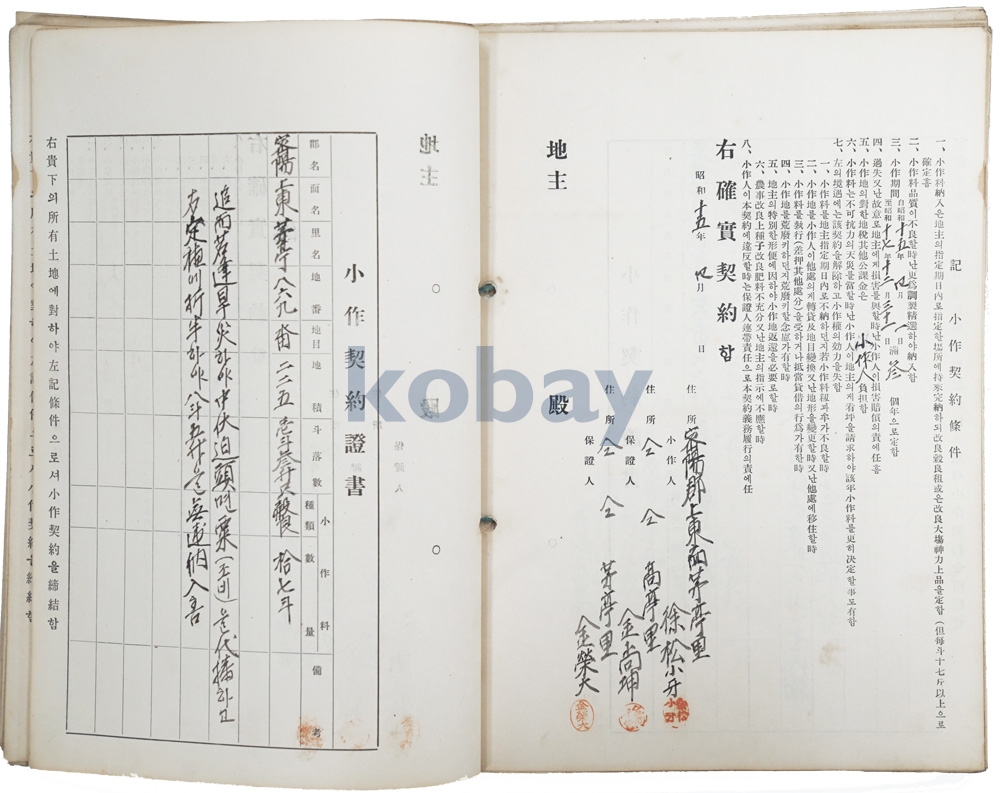 記 小作契約條件
一、小作料納入은地主의指定期日內로指定한場所에持來完納하되改良穀良租或은改良大場神力上品을定함（但每斗十七斤以上으로
確定홈
二、小作料品質이不良할時난更爲調製精選하야納入함
三、小作期間 自昭和十五年四月 日
至昭和十七年十二月三十一日 滿參個年으로定함
四、過失又난故意로地主에게損害를與할時난小作人이損害賠償의責에任홈
五、小作地의對한地稅其他公課金은 小作人 負担함
六、小作料는不可抗力의天災를當할時난小作人이地主의게看坪을請求하야該年小作料를更히決定할事도有함
七、左의境遇에는該契約을解除하고小作權의効力을失함
一、小作料를地主指定期日內로不納하던지若小作料가不良할時
二、小作地를小作人이他處의게轉貸及地目變換又난地形을變更할時又난他處에移住할時
三、小作料를執行(差押其他處分)을受하거나抵當貸借의行爲가有할時
四、小作地를荒廢키하던지荒廢키할念慮가有할時
五、地主의特別한形便에因하야小作地返還을必要로할時
六、農事改良上種子改良肥料不充分又난地主의指示에不應할時
八、小作人이本契約에違反할時는保證人連帶責任으로本契約義務履行의責에任
右確實契約함
昭和十五年 四月 日
住所 密陽郡上東面茅亭里
小作人 徐松小牙
住所 仝 仝 高亭里
保證人 金尙坤
住所 仝 仝 茅亭里
保證人 金榮大
地主 殿
小作契約證書
郡名 面名 里名 地番 地目 地積 斗落數 小作料 種類 數量 備考
密陽 上東 茅亭 八六九 畓 二二五 壱斗參升 只 贊 拾七斗
追而 旱災하야中伏迫頭 粟(조비)을代播하고
右定植 하야八斗五升 을無違納入홈
右貴下의所有土地에對하야左記條件으로셔小作契約을締結함
kobay